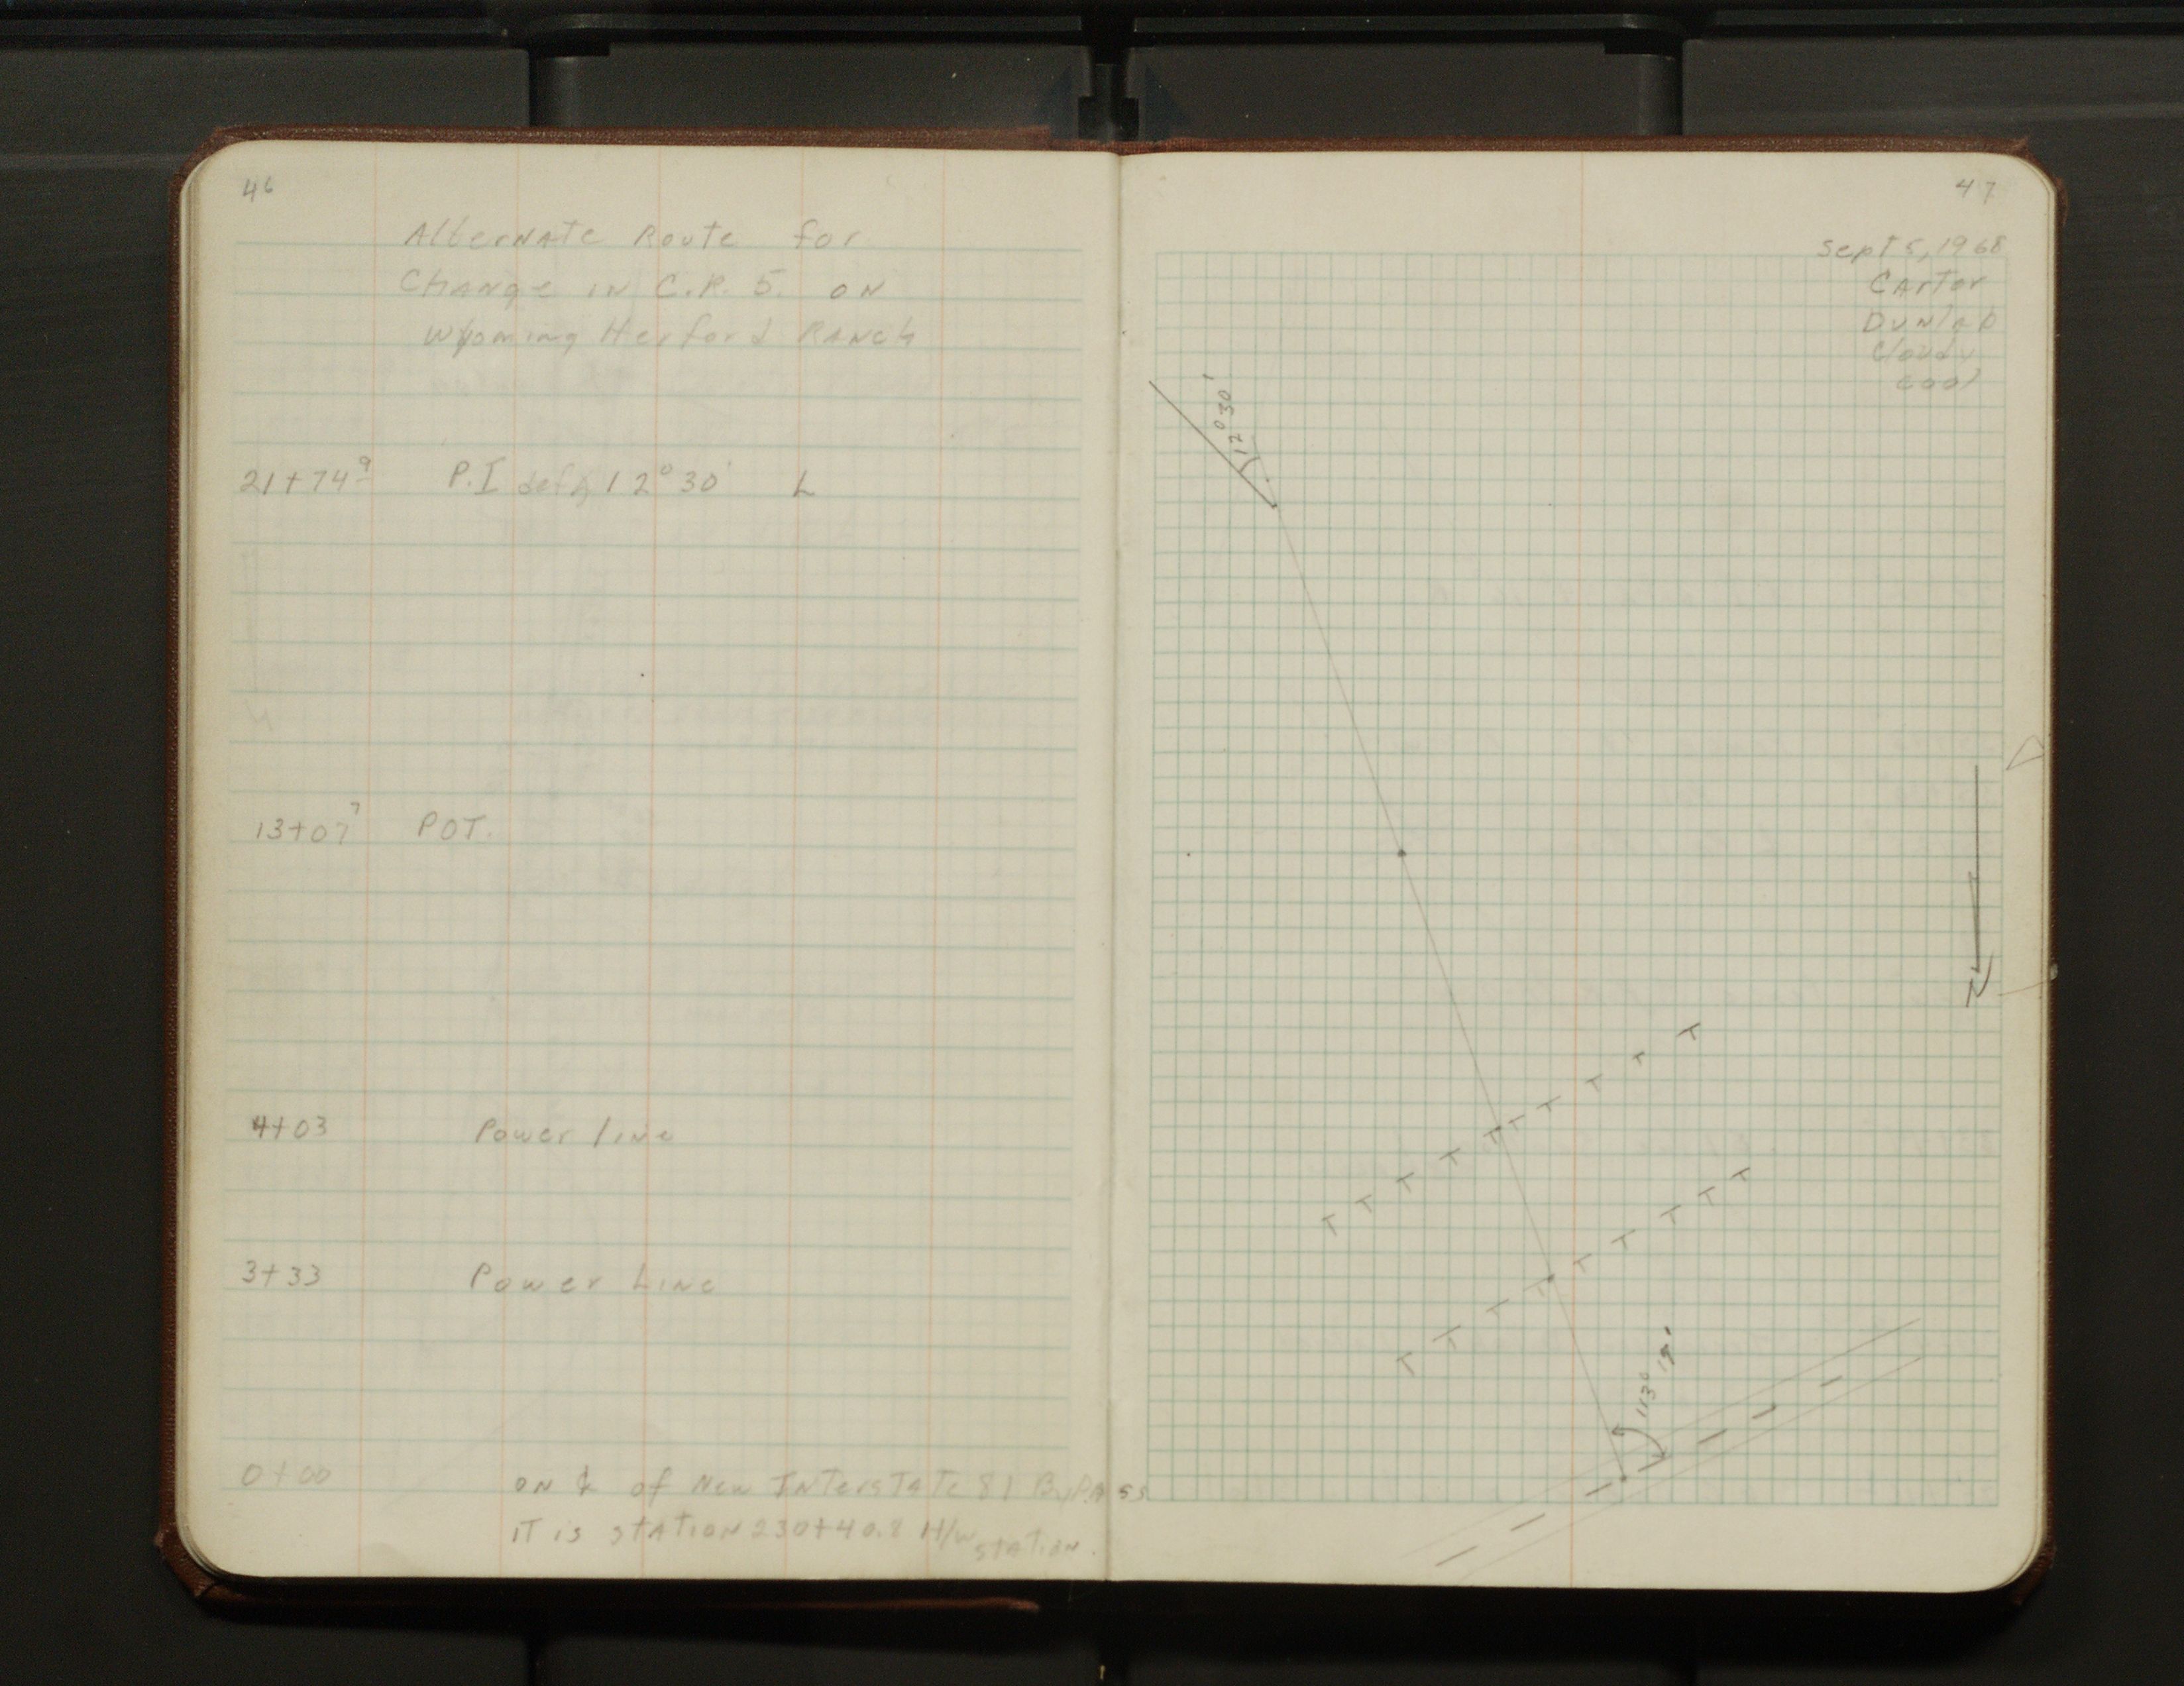 46
Alternate Route for
Change in C.R. 5. on
Wyoming Herford Ranch
21+74⁹ P.I defl, 12° 30' L
13+07⁷ POT.
4+03 Power line
3+33 Power Line
0+00 on ℄ of New Interstate 81 ByPass
IT is station 230+40.8 H/w station.
47
Sept 5, 1968
Carter
Dunlap
Cloudy
cool
12° 30'
113°